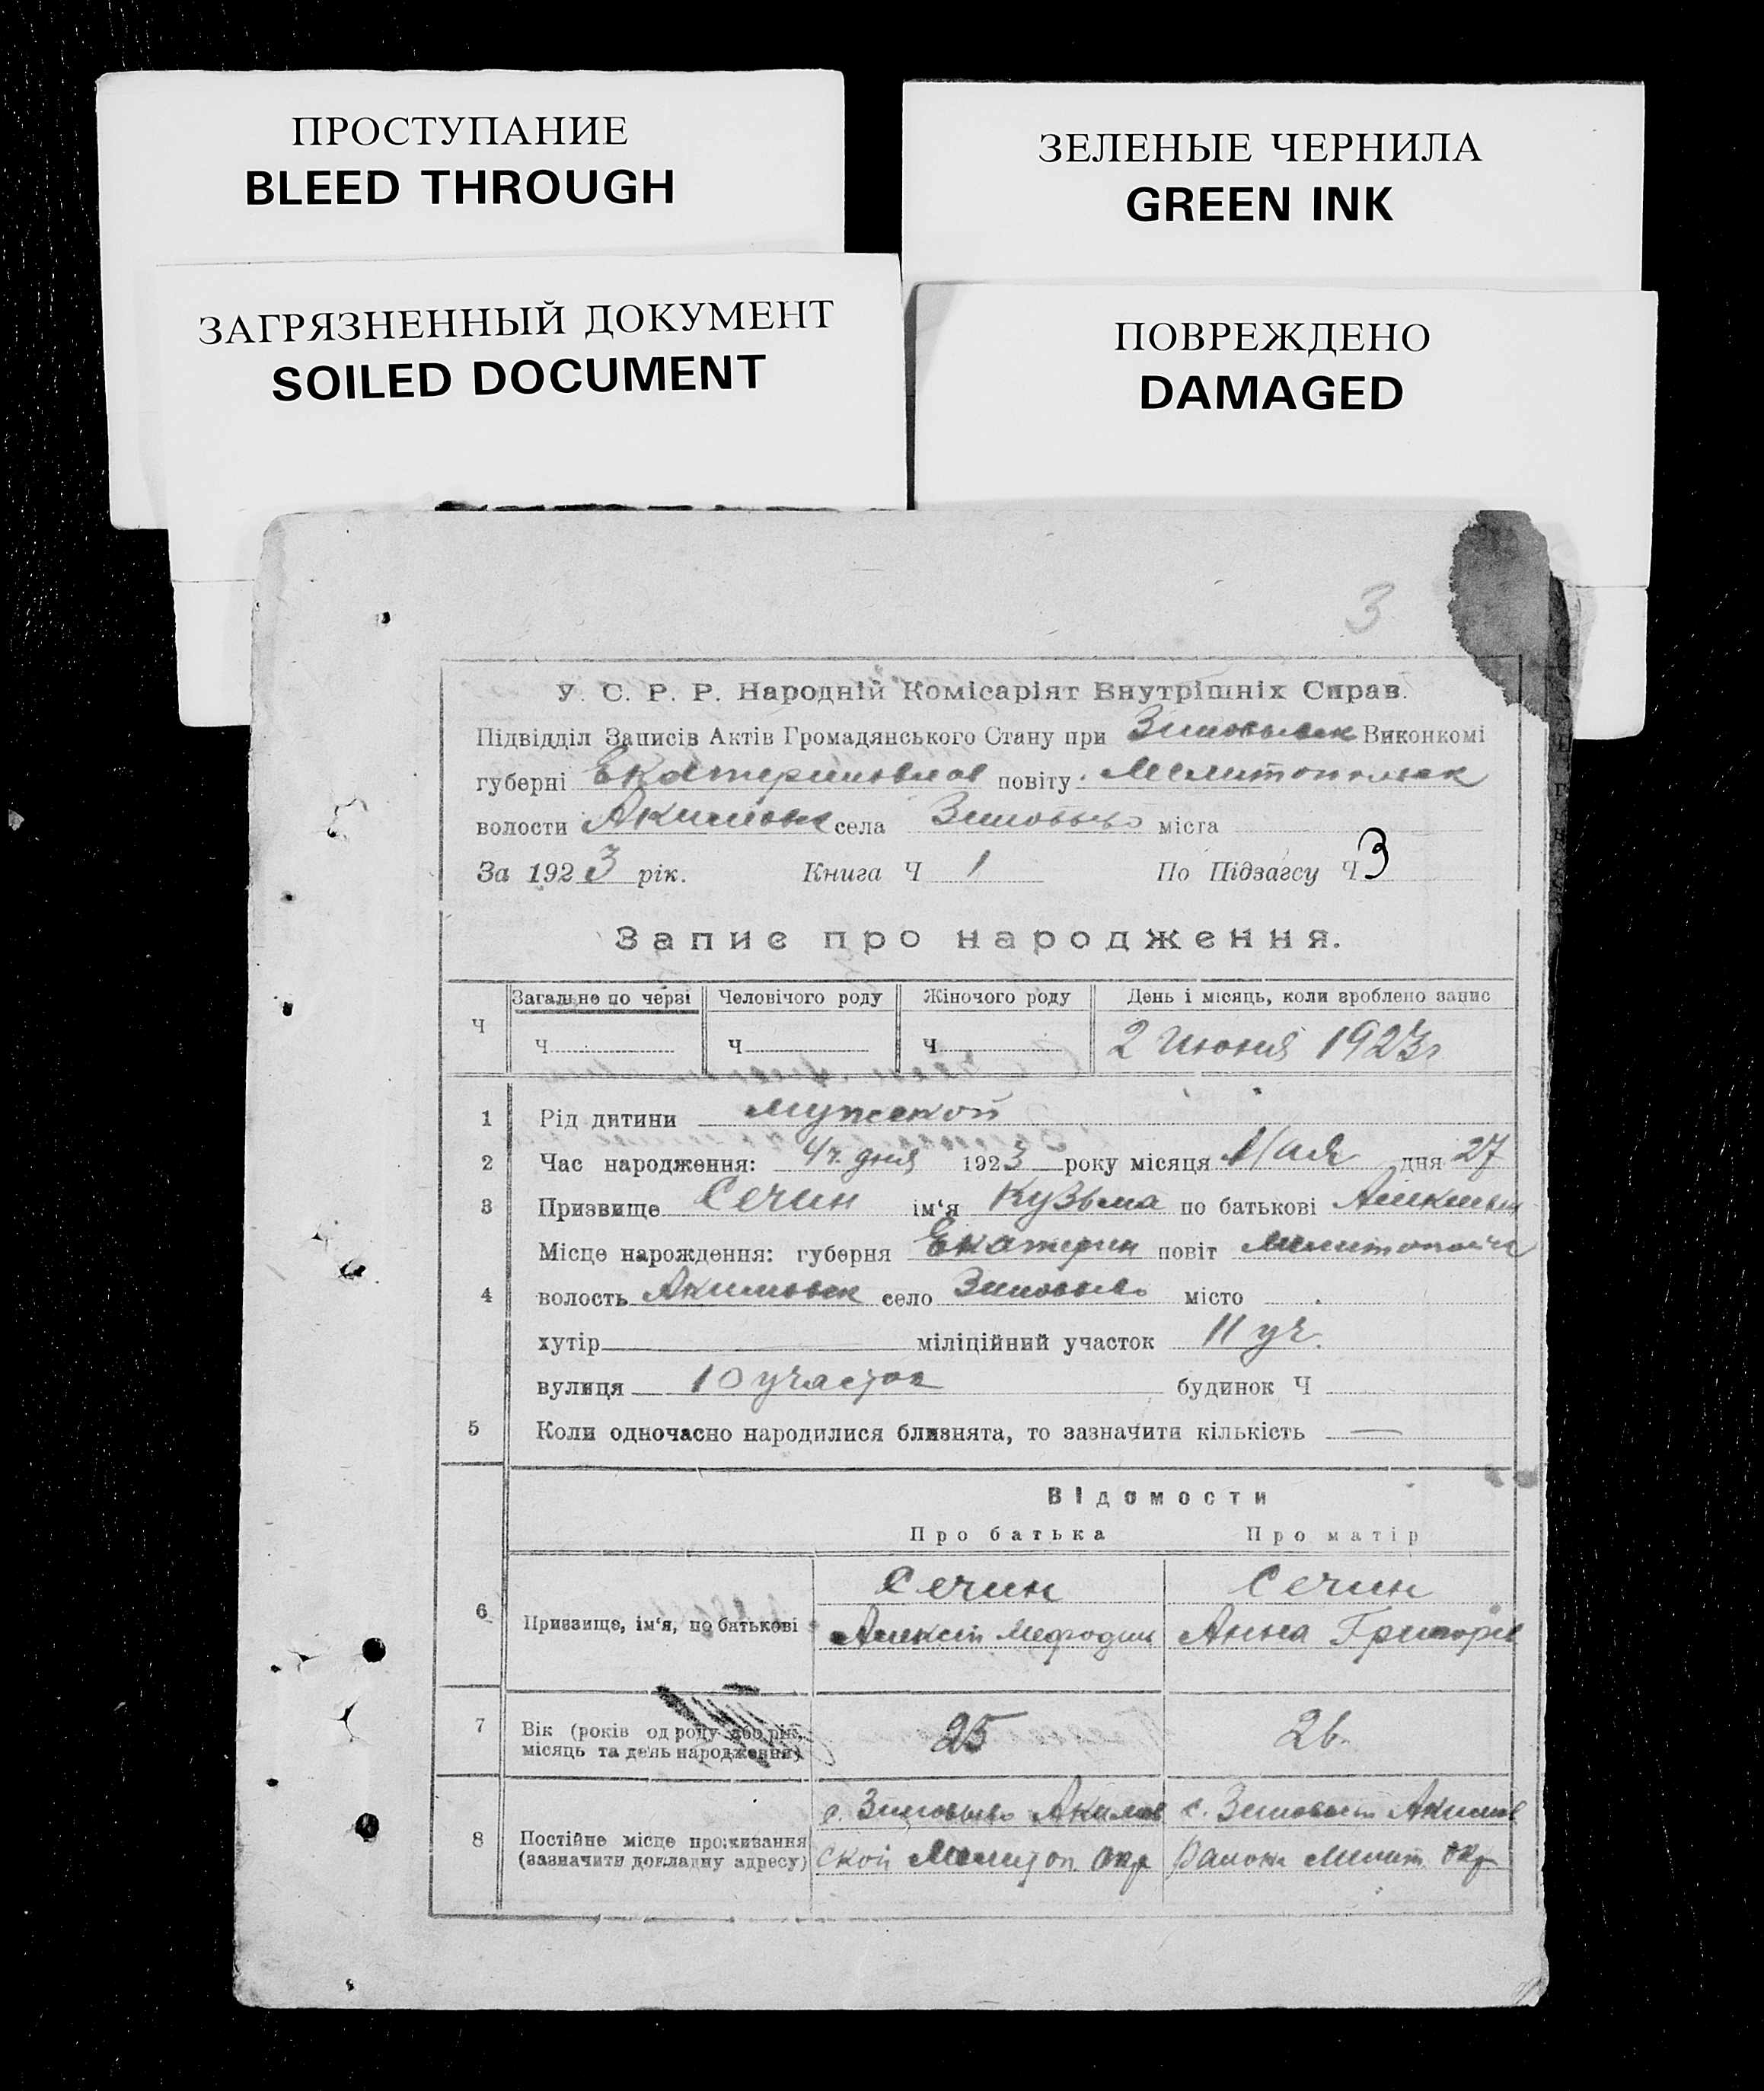 ПРОСТУПАНИЕ
BLEED THROUGH
ЗЕЛЕНЫЕ ЧЕРНИЛА
GREEN INK
ЗАГРЯЗНЕННЫЙ ДОКУМЕНТ
SOILED DOCUMENT
ПОВРЕЖДЕНО
DAMAGED
3
У. С. Р. Р. Народній Комісаріят Внутрішніх Справ.
Підвідділ Записів Актів Громадянського Стану при Виконкомі
губерні Екатеринослав повіту Мелитопольск
волости Акимовк села Зиновьево міста
За 1923 рік. Книга Ч 1 По Підзагсу Ч 3
Запис про народження.
Ч
Загальне по черзі Человічого роду Жіночого роду День і місяць, коли зроблено запис
Ч Ч Ч 2 Июня 1923 г
1 Рід дитини мужской
2 Час народження: 4 ч. дня 1923 року місяця Мая дня 27
3 Призвище Сечин ім'я Кузьма по батькові
Місце нарождення: губерня Екатерин повіт
4 волость Акимовск село Зиновьево місто
хутір міліційний участок 11 уч.
вулиця 10 участок будинок Ч
5 Коли одночасно народилися близнята, то зазначити кількість —
Відомости
Про батька Про матір
6 Призвище, ім'я, по батькові
Сечин Сечин
Алексей Мефодии Анна Григорев
7 Вік (років од роду або рік, місяць та день народження)
25 26.
8 Постійне місце проживання (зазначити докладну адресу)
с. Зиновьево Акимов с. Акимов
ской Мелитоп окр Района Мелит. окр